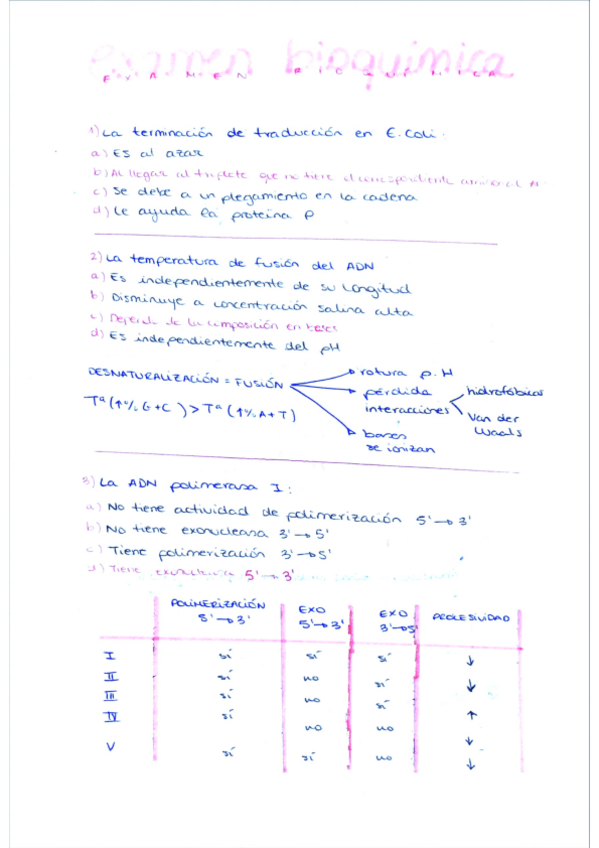 examen bioquímica
EXAMEN BIOQUÍMICA
1) La terminación de traducción en E. Coli:
a) Es al azar
b) Al llegar al triplete que no tiene el correspondiente
c) Se debe a un plegamiento en la cadena
d) Le ayuda la proteína P
2) La temperatura de fusión del ADN
a) Es independientemente de su longitud
b) Disminuye a concentración salina alta
c) Depende de la composición en bases
d) Es independientemente del pH
DESNATURALIZACIÓN = FUSIÓN
rotura p. H
pérdida interacciones
hidrofóbicas
Van der Waals
bases se ionizan
Tª (↑% G+C) > Tª (↑% A+T)
3) La ADN polimerasa I:
a) No tiene actividad de polimerización 5'→3'
b) No tiene exonucleasa 3'→5'
c) Tiene polimerización 3'→5'
d) Tiene exonucleasa 5'→3'
POLIMERIZACIÓN 5'→3' EXO 5'→3' EXO 3'→5' PROCESIVIDAD
I sí sí sí ↓
II sí no sí ↓
III sí no sí ↑
IV sí no no ↓
V sí sí no ↓